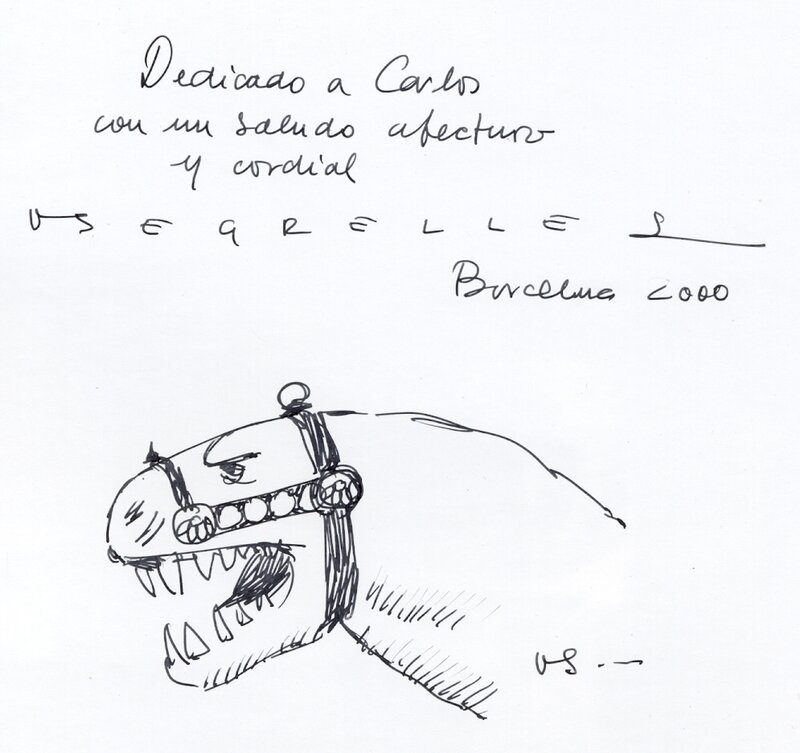 Dedicado a Carlos
con un saludo afectuoso
y cordial
VSEGRELLES
Barcelona 2000
VS